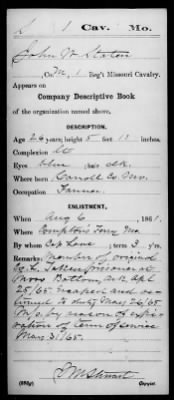 S | 1 | Cav. | Mo.
John W Staton
, Co. M, 1 Reg't Missouri Cavalry.
Appears on
Company Descriptive Book
of the organization named above.
DESCRIPTION.
Age 24 years; height 5 feet 11 inches.
Complexion lt
Eyes blue ; hair dk.
Where born Carroll Co. Mo.
Occupation Farmer.
ENLISTMENT.
When Aug 6 , 1861.
Where Compton's Ferry Mo.
By whom Capt Love ; term 3 y'rs.
Remarks: Member of original
Co. L. Taken prisoner at
Moors Bottom, Ark Apl
25/65 Escaped and re-
turned to duty May 26/65
M. O. by reason of expir-
ation of term of service
May 31/65.
T M Stewart
(383g) Copyist.